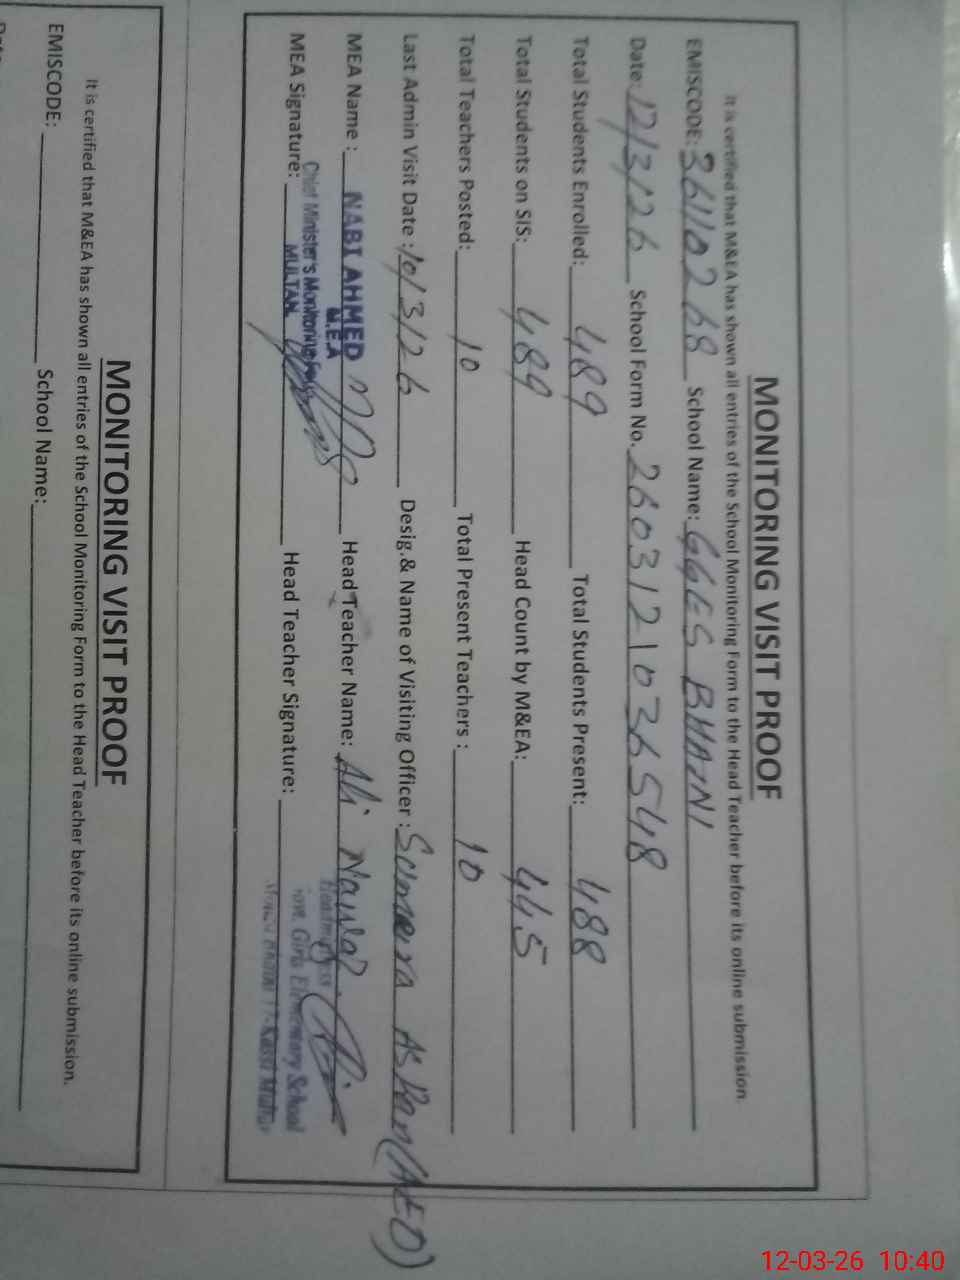 MONITORING VISIT PROOF
It is certified that M&EA has shown all entries of the School Monitoring Form to the Head Teacher before its online submission.
EMISCODE: 36110268 School Name: GGES BHATNI
Date: 12/3/26 School Form No. 2603121036548
Total Students Enrolled: 489 Total Students Present: 488
Total Students on SIS: 489 Head Count by M&EA: 445
Total Teachers Posted: 10 Total Present Teachers : 10
Last Admin Visit Date : 10/3/26 Desig.& Name of Visiting Officer : Sumera (AEO)
MEA Name : NABI AHMED Head Teacher Name:
M.E.A
Chief Minister's Monitoring Force
MULTAN
MEA Signature: Head Teacher Signature:
Headmistress
Govt. Girls Elementary School
MONITORING VISIT PROOF
It is certified that M&EA has shown all entries of the School Monitoring Form to the Head Teacher before its online submission.
EMISCODE: School Name:
12-03-26 10:40